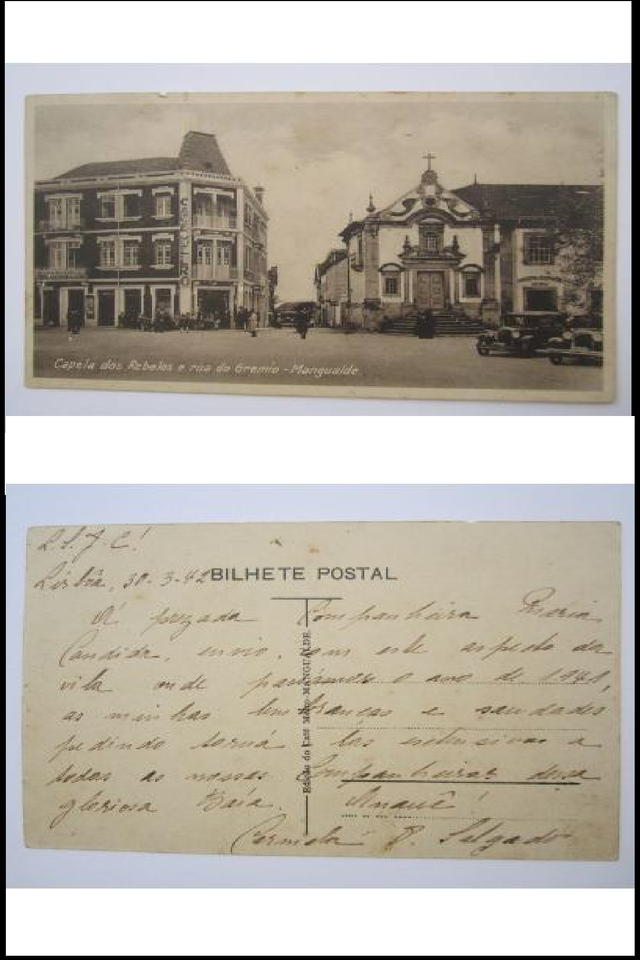 Capela dos Rebelos e rua do Gremio - Mangualde
L.S.J.C!
Lisbôa, 30-3-42
BILHETE POSTAL
Á prezada Companheira Maria
Candida, envio, com este aspecto da
vila onde passámos o ano de 1941,
as minhas lembranças e saudades
pedindo torná-las extensivas a
todas as nossas Companheiras dessa
gloriosa Baía. Anauê!
Carmela P. Salgado
Edição do Café MANGUALDE